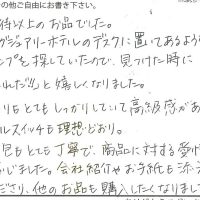 の他ご自由にお書き下さい。
待以上のお品でした。
グジュアリーホテルのデスクに置いてあるよう
ンプを探していたので、見つけた時に
れだ!!」と嬉しくなりました。
りもとてもしっかりしていて高級感があ
ルスイッチも理想どおり。
包もとても丁寧で、商品に対する愛
じました。会社紹介やお手紙も添
ださり、他のお品も購入したくなりまし